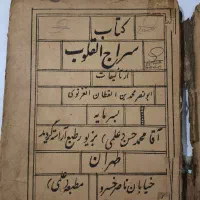 کتاب
سراج القلوب
از تألیفات
ابونصر محمد بن القطان الغزنوی
بسرمایه
آقا محمد حسن علمی بزیور طبع آراسته گردید
طهران
خیابان ناصر خسرو مطبعه علمی